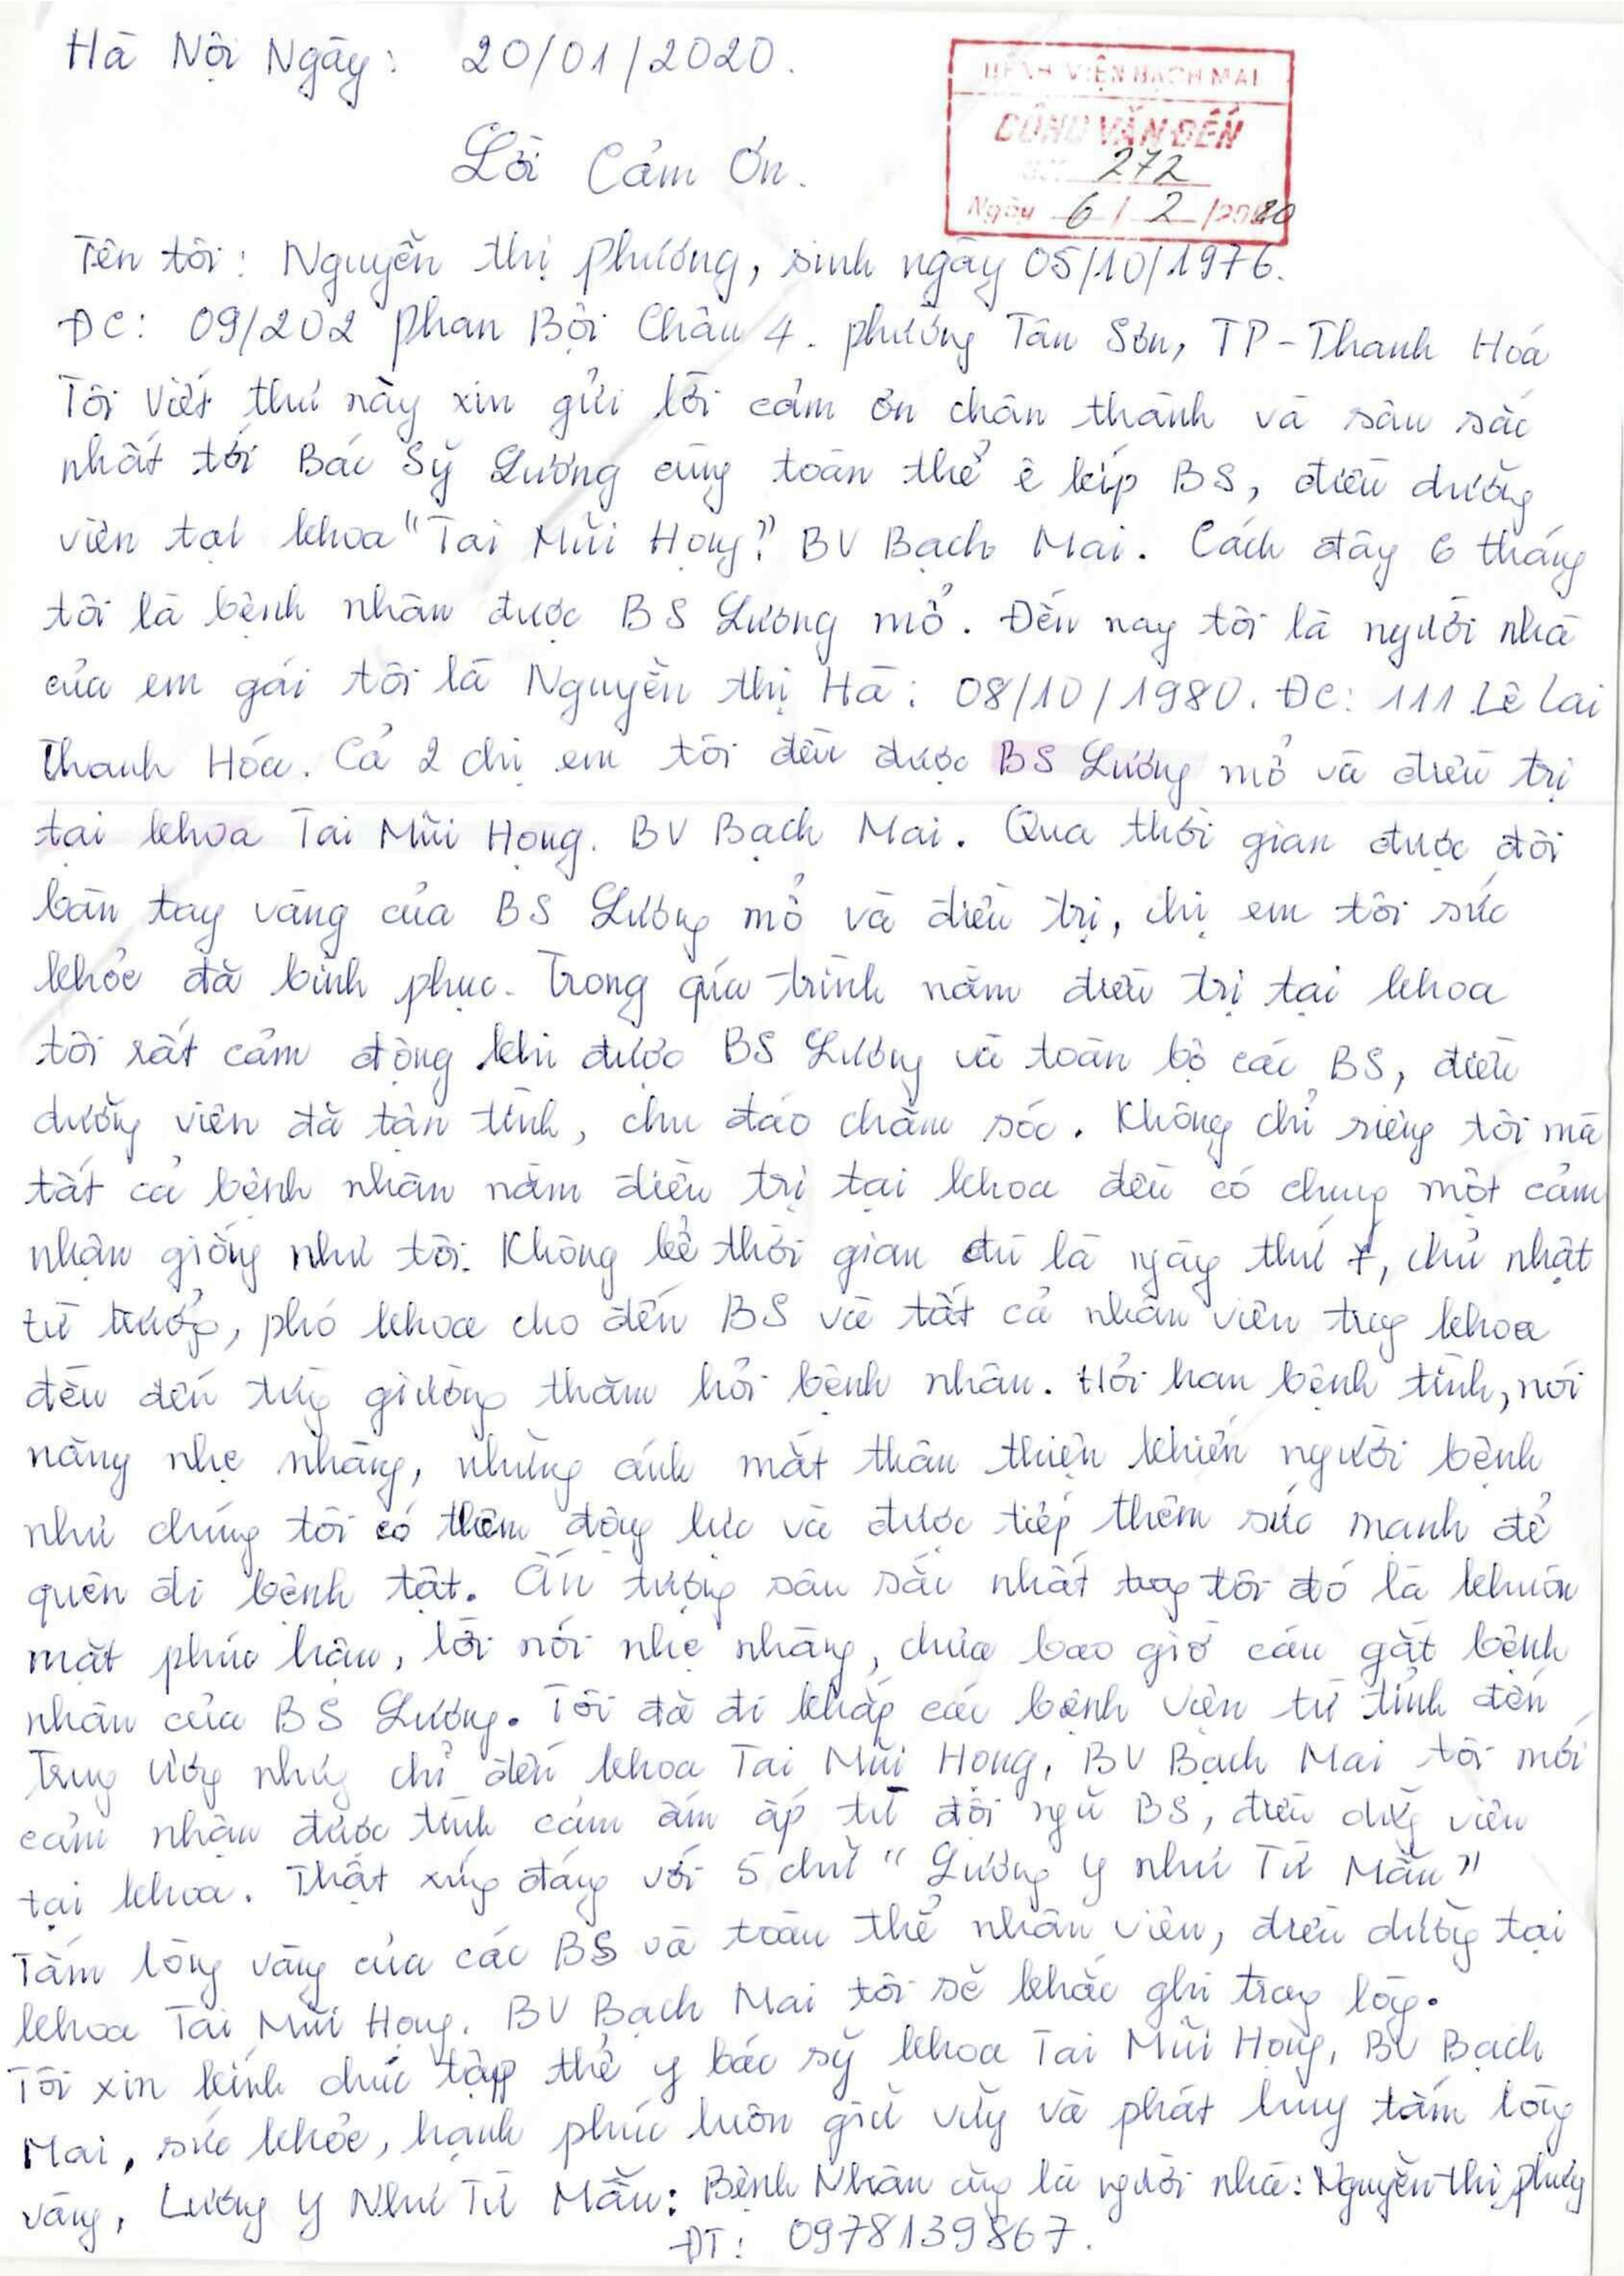 Hà Nội Ngày: 20/01/2020.
BỆNH VIỆN BẠCH MAI
CÔNG VĂN ĐẾN
Số: 272
Ngày 6 / 2 /2020
Lời Cảm Ơn.
Tên tôi: Nguyễn thị phương, sinh ngày 05/10/1976.
ĐC: 09/202 phan Bội Châu 4. phường Tân Sơn, TP-Thanh Hoá
Tôi viết thư này xin gửi lời cảm ơn chân thành và sâu sắc
nhất tới Bác Sỹ Lương cùng toàn thể ê kíp BS, điều dưỡng
viên tại khoa "Tai Mũi Họng" BV Bạch Mai. Cách đây 6 tháng
tôi là bệnh nhân được BS Lương mổ. Đến nay tôi là người nhà
của em gái tôi là Nguyễn thị Hà: 08/10/1980. ĐC: 111 Lê Lai
Thanh Hóa. Cả 2 chị em tôi đều được BS Lương mổ và điều trị
tại khoa Tai Mũi Họng. BV Bạch Mai. Qua thời gian được đôi
bàn tay vàng của BS Lương mổ và điều trị, chị em tôi sức
khỏe đã bình phục. Trong qúa trình nằm điều trị tại khoa
tôi rất cảm động khi được BS Lương và toàn bộ các BS, điều
dưỡng viên đã tận tình, chu đáo chăm sóc. Không chỉ riêng tôi mà
tất cả bệnh nhân nằm điều trị tại khoa đều có chung một cảm
nhận giống như tôi. Không kể thời gian dù là ngày thứ 7, chủ nhật
từ trưởng, phó khoa cho đến BS và tất cả nhân viên trong khoa
đều đến từng giường thăm hỏi bệnh nhân. Hỏi han bệnh tình, nói
năng nhẹ nhàng, những ánh mắt thân thiện khiến người bệnh
như chúng tôi có thêm động lực và được tiếp thêm sức mạnh để
quên đi bệnh tật. Ấn tượng sâu sắc nhất trong tôi đó là khuôn
mặt phúc hậu, lời nói nhẹ nhàng, chưa bao giờ cáu gắt bệnh
nhân của BS Lương. Tôi đã đi khắp các bệnh viện từ tỉnh đến
Trung ương nhưng chỉ đến khoa Tai Mũi Họng, BV Bạch Mai tôi mới
cảm nhận được tình cảm ấm áp từ đội ngũ BS, điều dưỡng viên
tại khoa. Thật xứng đáng với 5 chữ "Lương y như Từ Mẫu"
Tấm lòng vàng của các BS và toàn thể nhân viên, điều dưỡng tại
khoa Tai Mũi Họng. BV Bạch Mai tôi sẽ khắc ghi trong lòng.
Tôi xin kính chúc tập thể y bác sỹ khoa Tai Mũi Họng, BV Bạch
Mai, sức khỏe, hạnh phúc luôn giữ vững và phát huy tấm lòng
vàng, Lương Y Như Từ Mẫu: Bệnh Nhân cũng là người nhà: Nguyễn thị phương
ĐT: 0978139867.